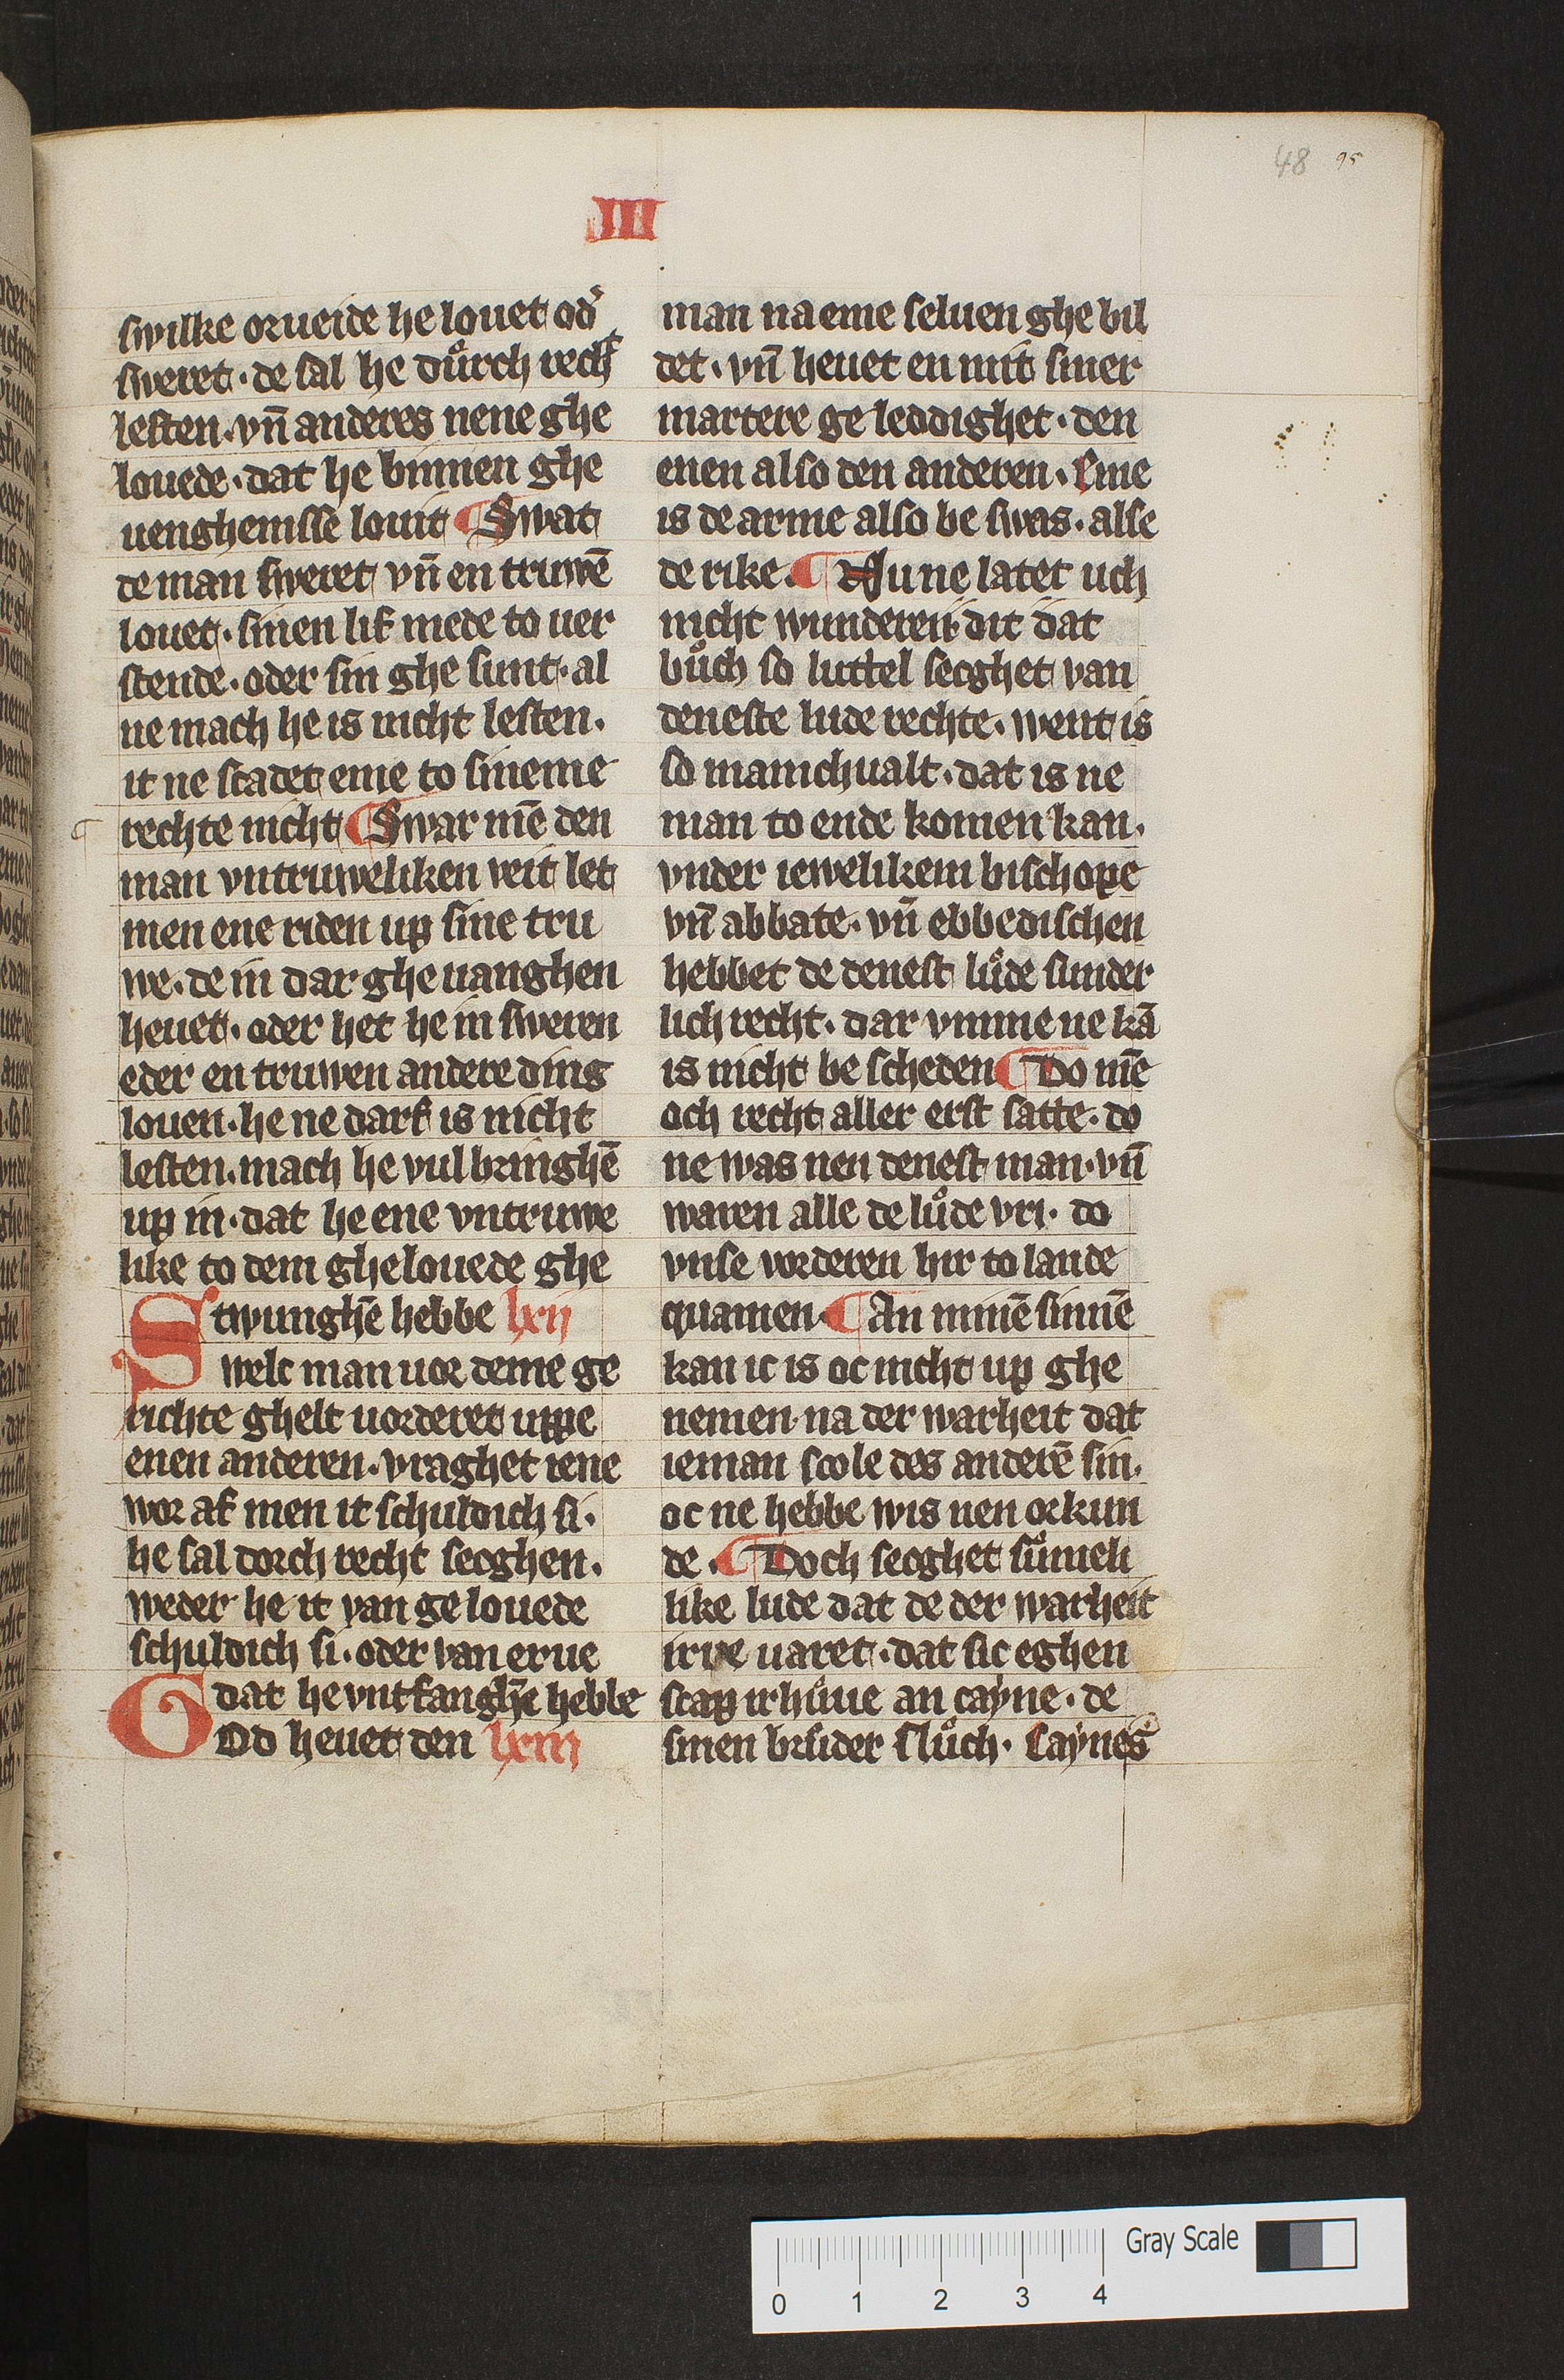 48 95
III
swilke orueide he louet od᷎
sweret · de sal he důrch rech᷎
lesten · vn̄ anderes nene ghe
louede · dat he binnen ghe
uenghenisse louit ¶ Swat
de man sweret vn̄ en truwē
louet · sinen lif mede to uer
stende · oder sin ghe sunt · al
ne mach he is nicht lesten ·
it ne scadet eme to sineme
rechte nicht ¶ Swar mē den
man vntruweliken veit let
men ene riden up sine tru
we · de in dar ghe uanghen
heuet · oder het he in sweren
eder en truwen andere ding
louen · he ne darf is nicht
lesten · mach he vul bringhē
up in · dat he ene vntruwe
like to dem ghelouede ghe
twunghē hebbe lxii
Swelc man uor deme ge
richte ghelt uorderet uppe
enen anderen · vraghet iene
wor af men it schuldich si ·
he sal dorch recht secghen ·
weder he it van ge louede
schuldich si · oder van erue
dat he vntfanghē hebbe
God heuet den lxiii
man na eme seluen ghe bil
det · vn̄ heuet en mit siner
martere ge leddighet · den
enen also den anderen · Eme
is de arme also be swas · alse
de rike · ¶ Nu ne latet uch
nicht wunderen dit dat
bůch so luttel secghet van
deneste lude rechte · went is
so manichualt · dat is ne
man to ende komen kan ·
vnder iewelikem bischope
vn̄ abbate · vn̄ ebbedischen
hebbet de denest lůde sunder
lich recht · dar vmme ne kā
is nicht be scheden ¶ Do mē
och recht aller erst satte · do
ne was nen denest man · vn̄
waren alle de lůde vri · do
vnse vorderen hir to lande
quamen · ¶ An minē sinnē
kan ic is oc nicht up ghe
nemen · na der warheit dat
ieman scole des anderē sin ·
oc ne hebbe wis nen orkun
de · ¶ Doch secghet sůmeli
like lude dat de der warheit
irve uaret · dat sic eghen
scap irhůue an cayne · de
sinen brůder slůch · Caynes